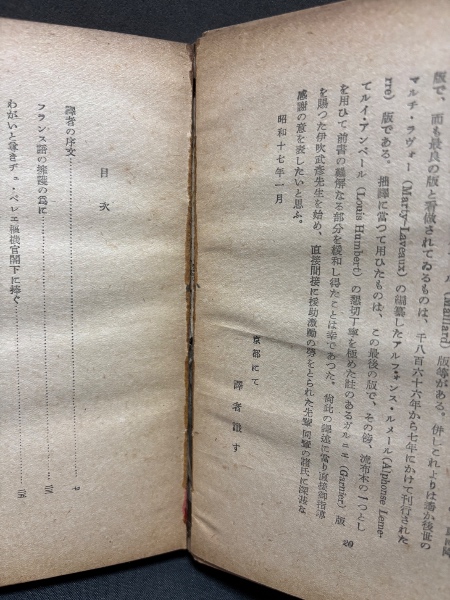 版で、而も最良の版と看做されてゐるものは、千八百六十六年から七年にかけて刊行された
マルチ・ラヴォー (Marty-Laveaux) の編纂したアルフォンス・ルメール(Alphonse Leme-
rre) 版である。拙譯に當つて用ひたものは、この最後の版で、その傍、流布本の一つとし
てルイ・アンベール (Louis Humbert) の懇切丁寧を極めた註のあるガルニエ (Garnier) 版
を用ひて前書の難解なる部分を緩和し得たことは幸であつた。尚此の飜譯に當り直接御指導
を賜つた伊吹武彦先生を始め、直接間接に援助激勵の勞をとられた先輩同輩の諸氏に深甚な
感謝の意を表したいと思ふ。
昭和十七年一月
京都にて
譯者識す
20
目次
譯者の序文
フランス語の擁護の爲に
わがいと尊きヂュ・ベレエ樞機官閣下に捧ぐ